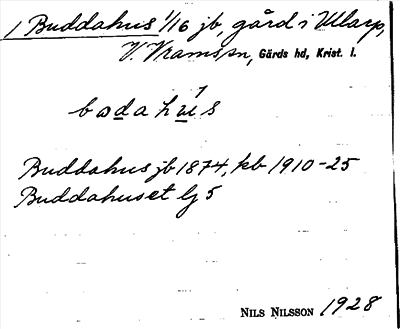 1 Buddahus 1/16 jb, gård i Ullarp,
V. Vramssn, Gärds hd, Krist. l.
bodahus
Buddahus jb 1874, kb 1910-25
Buddahuset lj 5
NILS NILSSON 1928